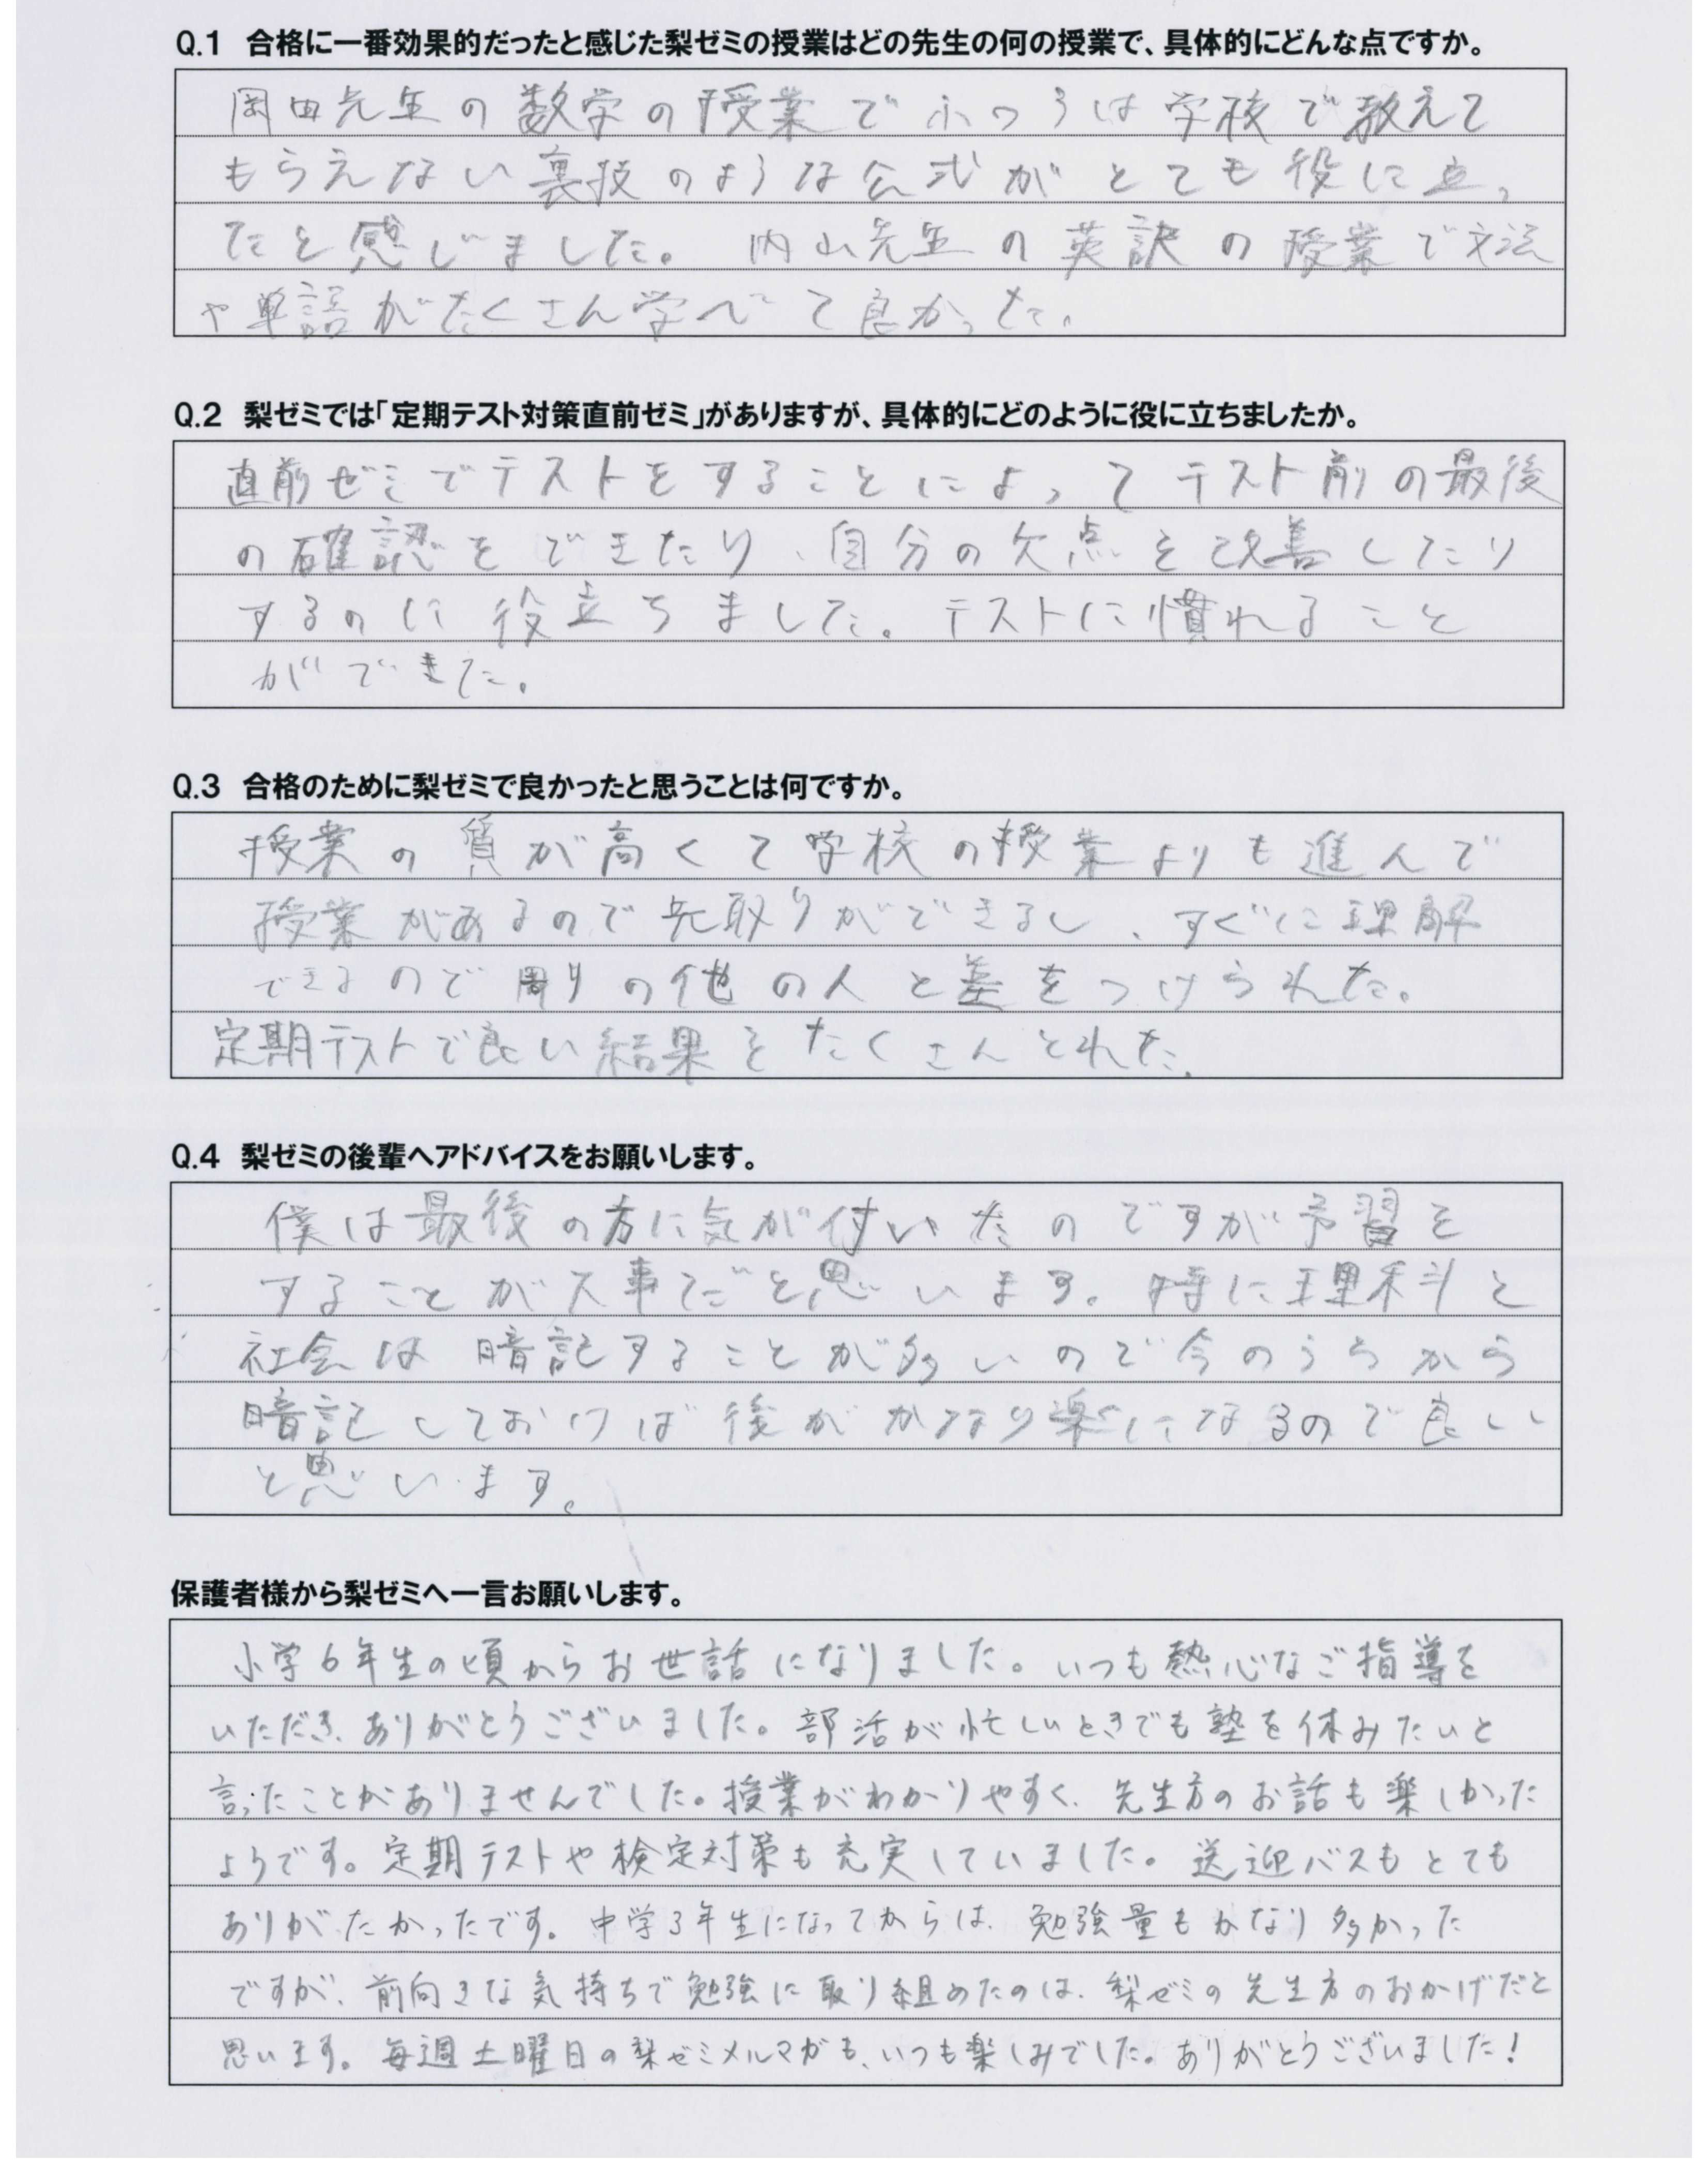 Q.1 合格に一番効果的だったと感じた梨ゼミの授業はどの先生の何の授業で、具体的にどんな点ですか。
岡田先生の数学の授業でふつうは学校で教えて
もらえない裏技のような公式がとても役に立っ
たと感じました。 内山先生の英訳の授業で文法
や単語がたくさん学べて良かった。
Q.2 梨ゼミでは「定期テスト対策直前ゼミ」がありますが、具体的にどのように役に立ちましたか。
直前ゼミでテストをすることによってテスト前の最後
の確認をできたり、自分の欠点を改善したり
するのに役立ちました。テストに慣れること
ができた。
Q.3 合格のために梨ゼミで良かったと思うことは何ですか。
授業の質が高くて学校の授業よりも進んで
授業があるので先取りができるし、すぐに理解
できるので周りの他の人と差をつけられた。
定期テストで良い結果をたくさんとれた。
Q.4 梨ゼミの後輩へアドバイスをお願いします。
僕は最後の方に気が付いたのですが予習を
することが大事だと思います。特に理科と
社会は暗記することが多いので今のうちから
暗記しておけば後がかなり楽になるので良い
と思います。
保護者様から梨ゼミへ一言お願いします。
小学6年生の頃からお世話になりました。いつも熱心なご指導を
いただき、ありがとうございました。部活が忙しいときでも塾を休みたいと
言ったことがありませんでした。授業がわかりやすく、先生方のお話も楽しかった
ようです。定期テストや検定対策も充実していました。送迎バスもとても
ありがたかったです。中学3年生になってからは、勉強量もかなり多かった
ですが、前向きな気持ちで勉強に取り組めたのは、梨ゼミの先生方のおかげだと
思います。毎週土曜日の梨ゼミメルマガも、いつも楽しみでした。ありがとうございました!